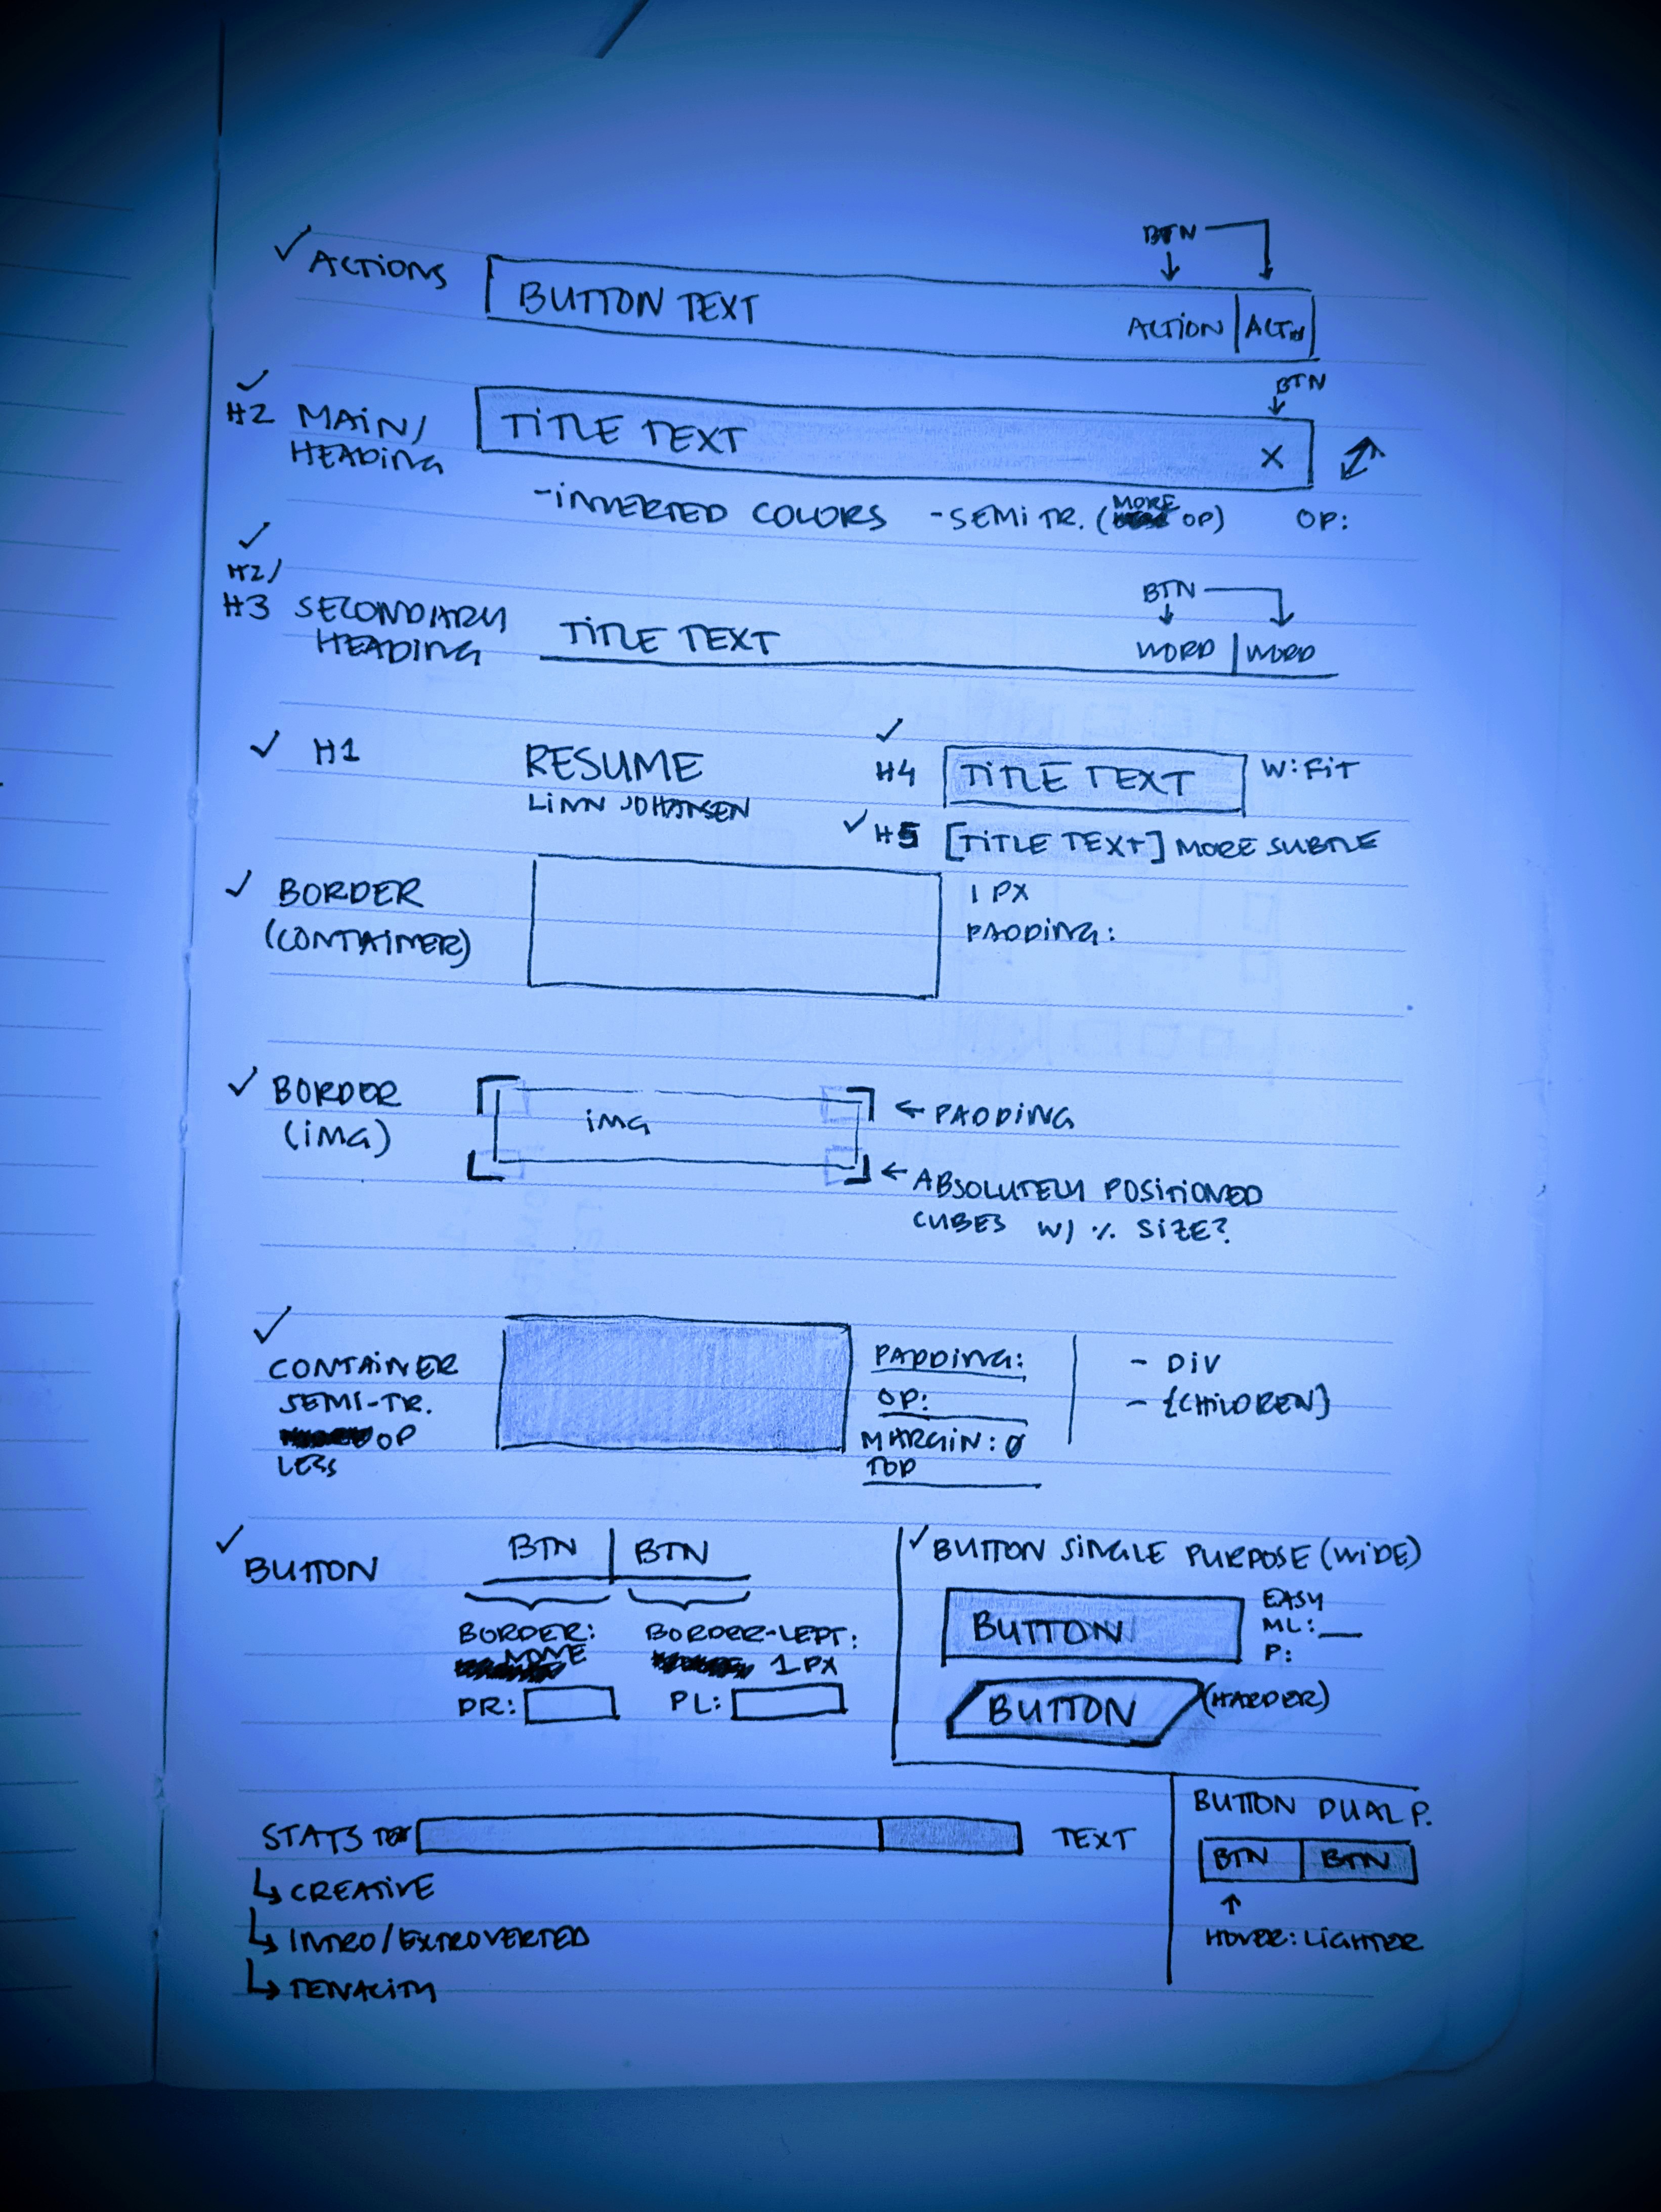 ✓ ACTIONS
BUTTON TEXT
BTN
ACTION | ACT
✓
H2 MAIN/
HEADING
TITLE TEXT
BTN
X
-INVERTED COLORS -SEMI TR. (MORE OP) OP:
✓
H2/
H3 SECONDARY
HEADING
TITLE TEXT
BTN
WORD | WORD
✓ H1
RESUME
LINN JOHANSEN
✓
H4 TITLE TEXT W:FIT
✓ H5 [TITLE TEXT] MORE SUBTLE
✓ BORDER
(CONTAINER)
1 PX
PADDING:
✓ BORDER
(IMG)
IMG
← PADDING
← ABSOLUTELY POSITIONED
CUBES W/ % SIZE?
✓
CONTAINER
SEMI-TR.
OP
LESS
PADDING:
OP:
MARGIN: 0
TOP
- DIV
- {CHILDREN}
✓
BUTTON
BTN | BTN
BORDER:
NONE
PR:
BORDER-LEFT:
1 PX
PL:
✓ BUTTON SINGLE PURPOSE (WIDE)
BUTTON
EASY
ML:__
P:
BUTTON (HARDER)
STATS TEXT
TEXT
↳ CREATIVE
↳ INTRO/EXTROVERTED
↳ TENACITY
BUTTON DUAL P.
BTN BTN
↑
HOVER: LIGHTER